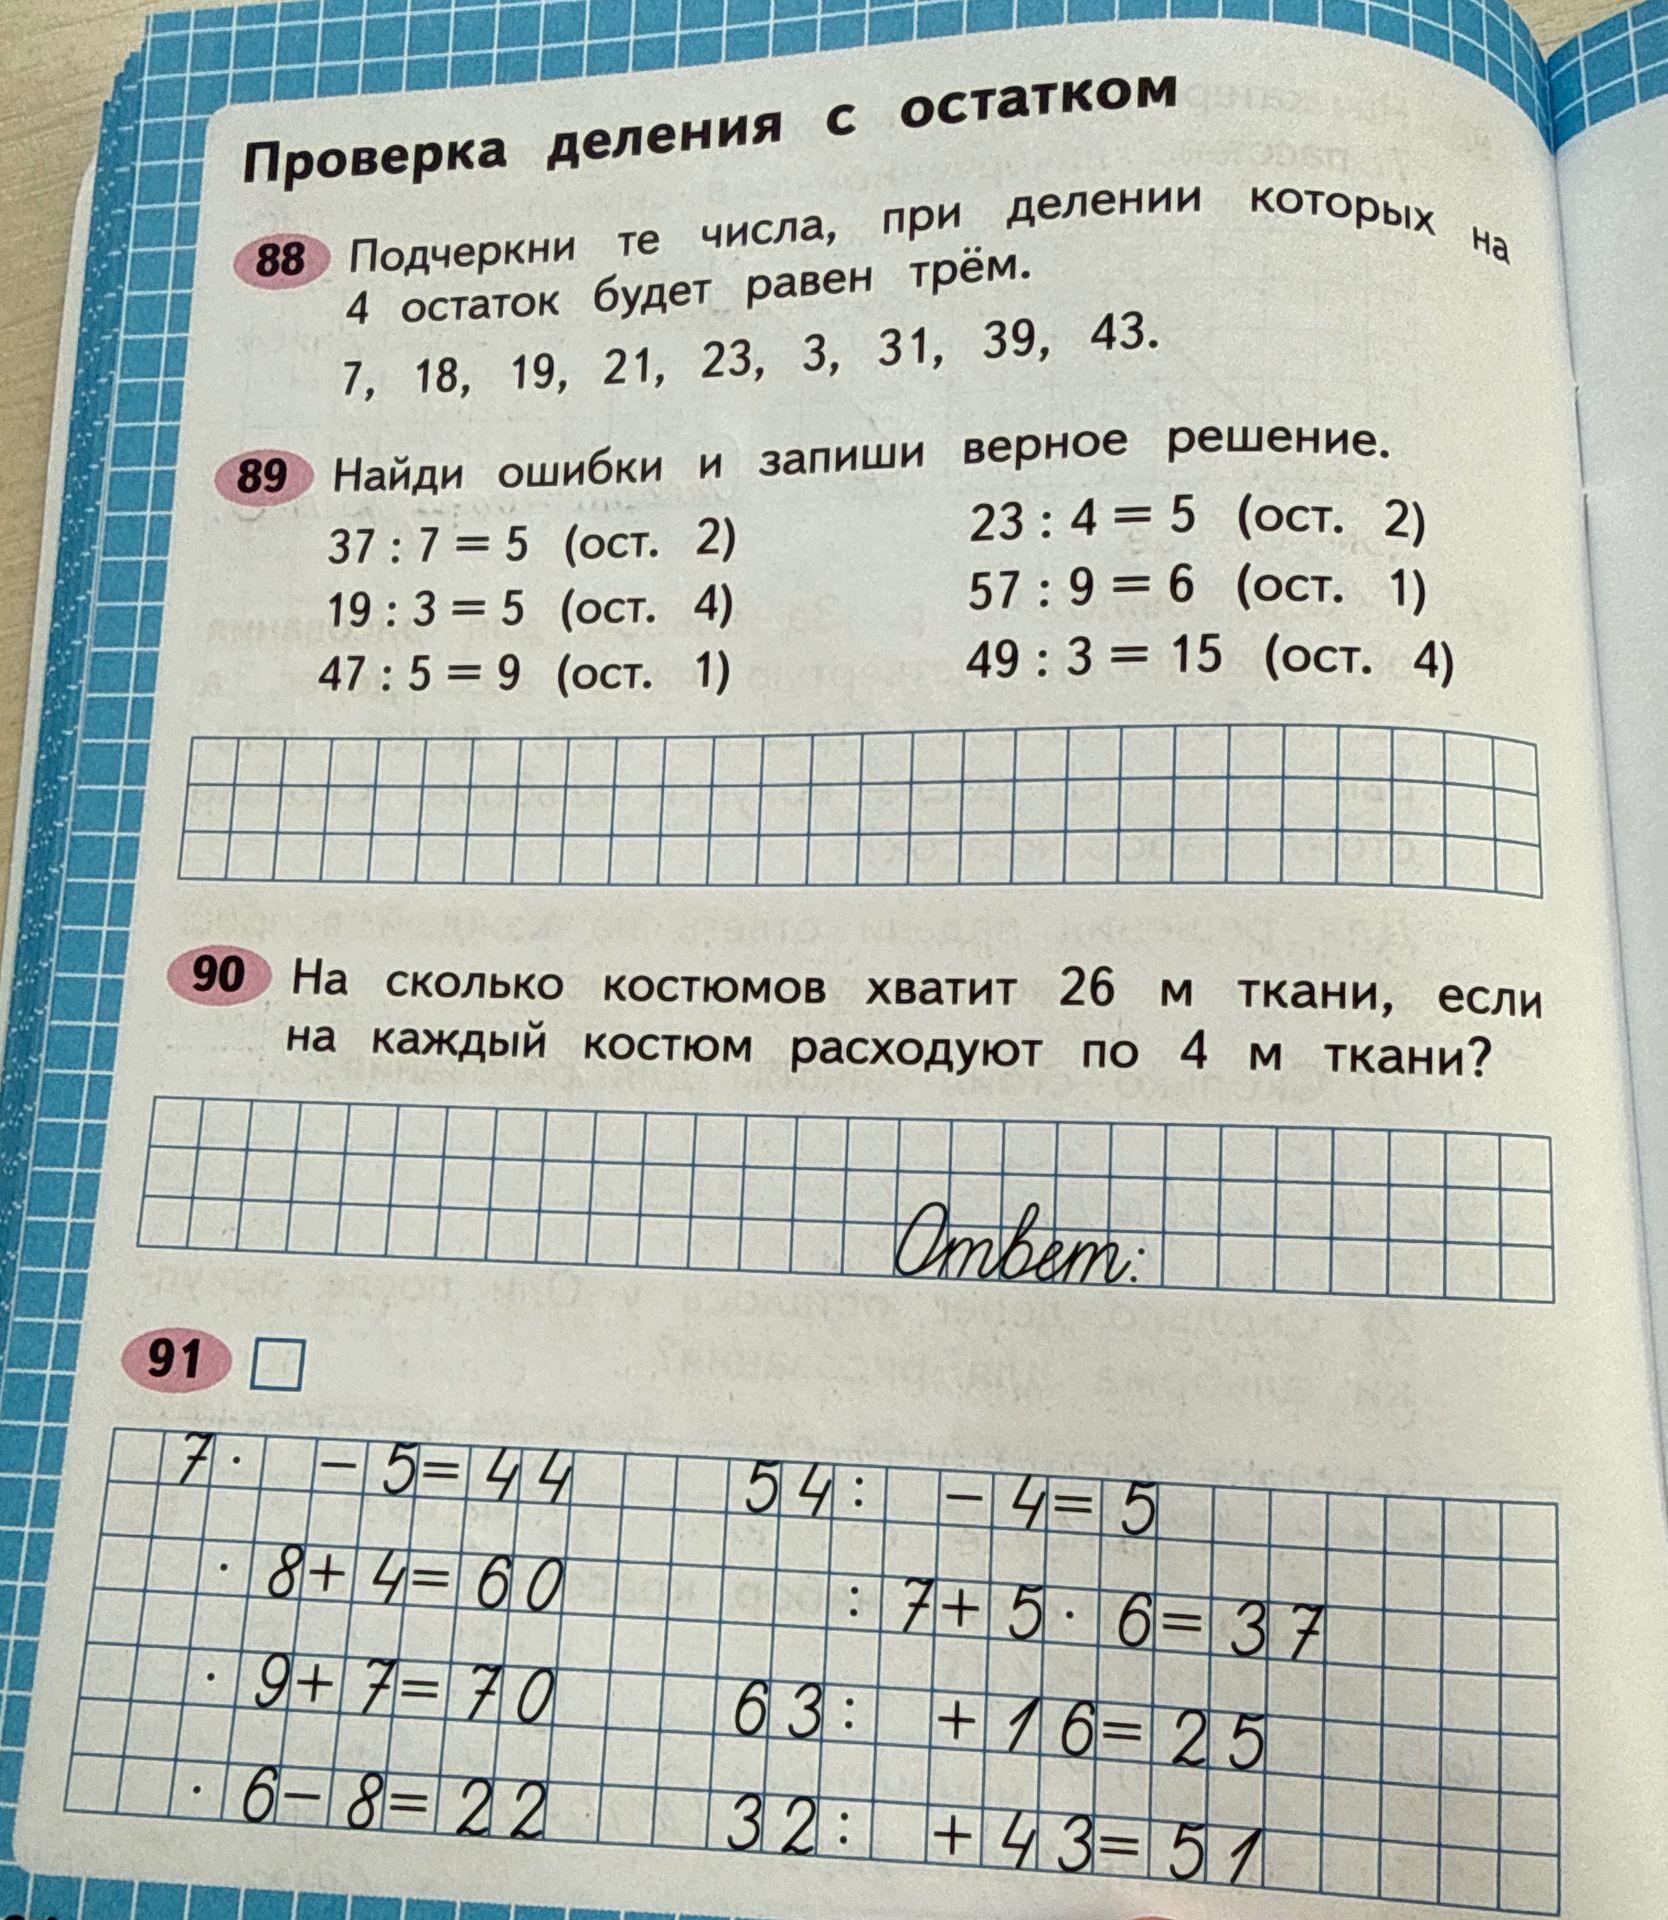 Проверка деления с остатком
88 Подчеркни те числа, при делении которых на
4 остаток будет равен трём.
7, 18, 19, 21, 23, 3, 31, 39, 43.
89 Найди ошибки и запиши верное решение.
37 : 7 = 5 (ост. 2) 23 : 4 = 5 (ост. 2)
19 : 3 = 5 (ост. 4) 57 : 9 = 6 (ост. 1)
47 : 5 = 9 (ост. 1) 49 : 3 = 15 (ост. 4)
90 На сколько костюмов хватит 26 м ткани, если
на каждый костюм расходуют по 4 м ткани?
Ответ:
91
7 · − 5 = 44 54 : − 4 = 5
· 8 + 4 = 60 : 7 + 5 · 6 = 37
· 9 + 7 = 70 63 : + 16 = 25
· 6 − 8 = 22 32 : + 43 = 51